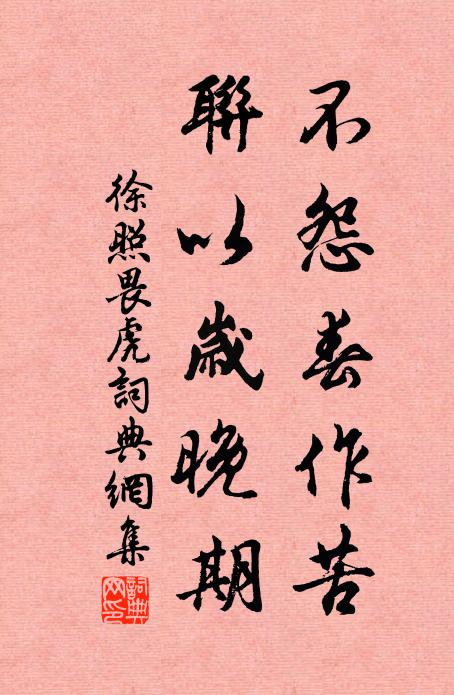 不怨春作苦
聯以歲晚期
徐照畏虎詞典網集
詞典